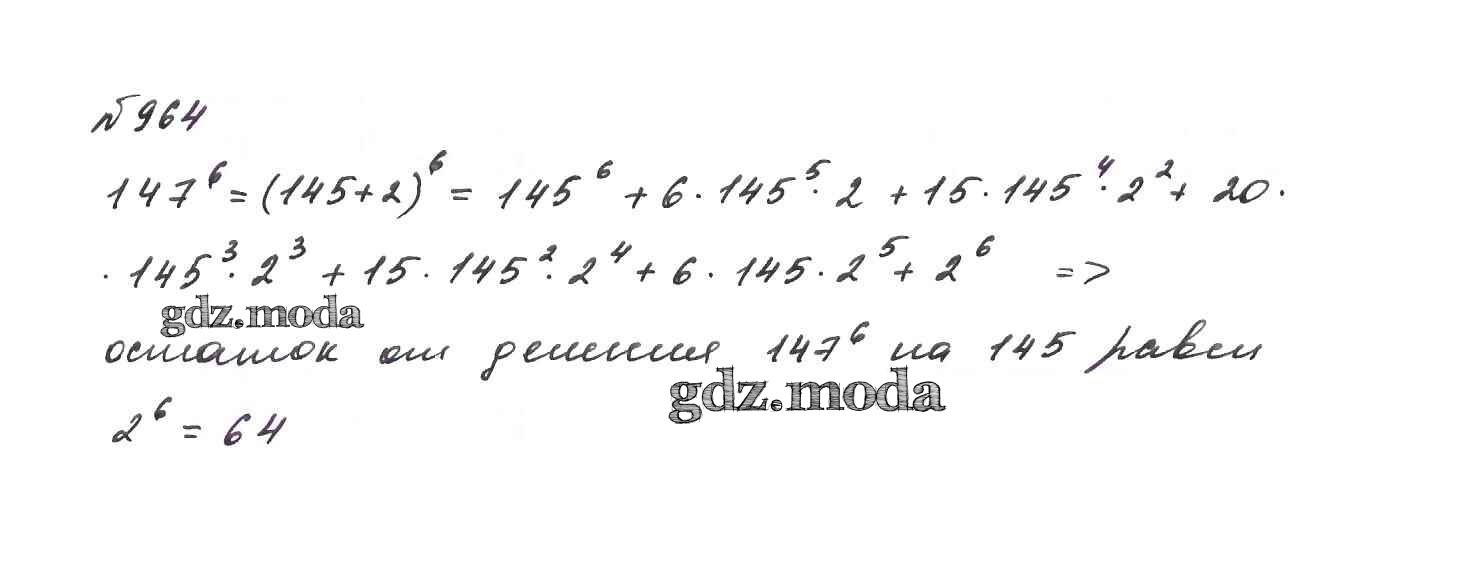 №964
147⁶ = (145+2)⁶ = 145⁶ + 6 · 145⁵ · 2 + 15 · 145⁴ · 2² + 20 ·
· 145³ · 2³ + 15 · 145² · 2⁴ + 6 · 145 · 2⁵ + 2⁶ =>
gdz.moda
остаток от деления 147⁶ на 145 равен
gdz.moda
2⁶ = 64